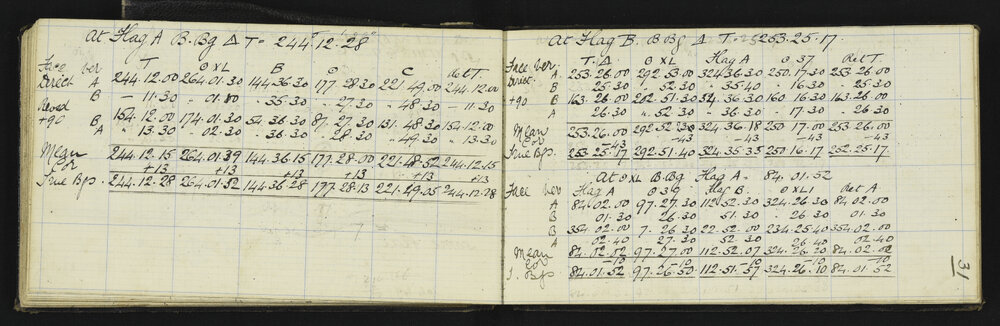 At Flag A B.Bg Δ T = 244°.12'.28"
Face Ver T ⊙ XL B ⊙ C det T.
Direct A 244.12.00 264.01.30 144.36.30 177.28.30 221.49.00 244.12.00
B - 11.30 . 01.00 . 35.30 . 27.30 . 48.30 - 11.30
+90 B 154.12.00 174.01.30 54.36.30 87.27.30 131.48.30 154.12.00
A " 13.30 . 02.30 . 36.30 . 28.30 . 49.30 . 13.30
Mean 244.12.15 264.01.39 144.36.15 177.28.00 221.48.52 244.12.15
Cor +13 +13 +13 +13 +13 +13
True Bgs. 244.12.28 264.01.52 144.36.28 177.28.13 221.49.05 244.12.28
At Flag B. B Bg Δ T = 253.25.17.
Face Ver. T. Δ ⊙ XL Flag A ⊙ 37 det T.
Direct A 253.26.00 292.53.00 324.36.30 250.17.30 253.26.00
B . 25.30 . 52.30 . 35.40 . 16.30 . 25.30
+90 B 163.26.00 202.51.30 234.36.30 160.16.30 163.26.00
A . 26.30 " 52.30 . 36.30 . 17.30 . 26.30
Mean 253.26.00 292.52.23 324.36.18 250.17.00 253.26.00
Cor -43 -43 -43 -43 -43
True Bgs. 253.25.17 292.51.40 324.35.35 250.16.17 252.25.17.
At ⊙ XL B.Bg Flag A = 84.01.52
Face Ver Flag A ⊙ 39 Flag B. ⊙ XL1 det A
A 84.02.00 97.27.30 112.52.30 324.26.30 84.02.00
B 01.30 26.30 51.30 . 26.30 01.30
B 354.02.00 7.26.30 22.52.00 234.25.40 354.02.00
A 02.40 27.30 52.30 26.40 02.40
Mean 84.02.02 97.27.00 112.52.07 324.26.20 84.02.02
Cor -10 -10 -10 -10 -10
T. Bgs 84.01.52 97.26.50 112.51.57 324.26.10 84.01.52
31